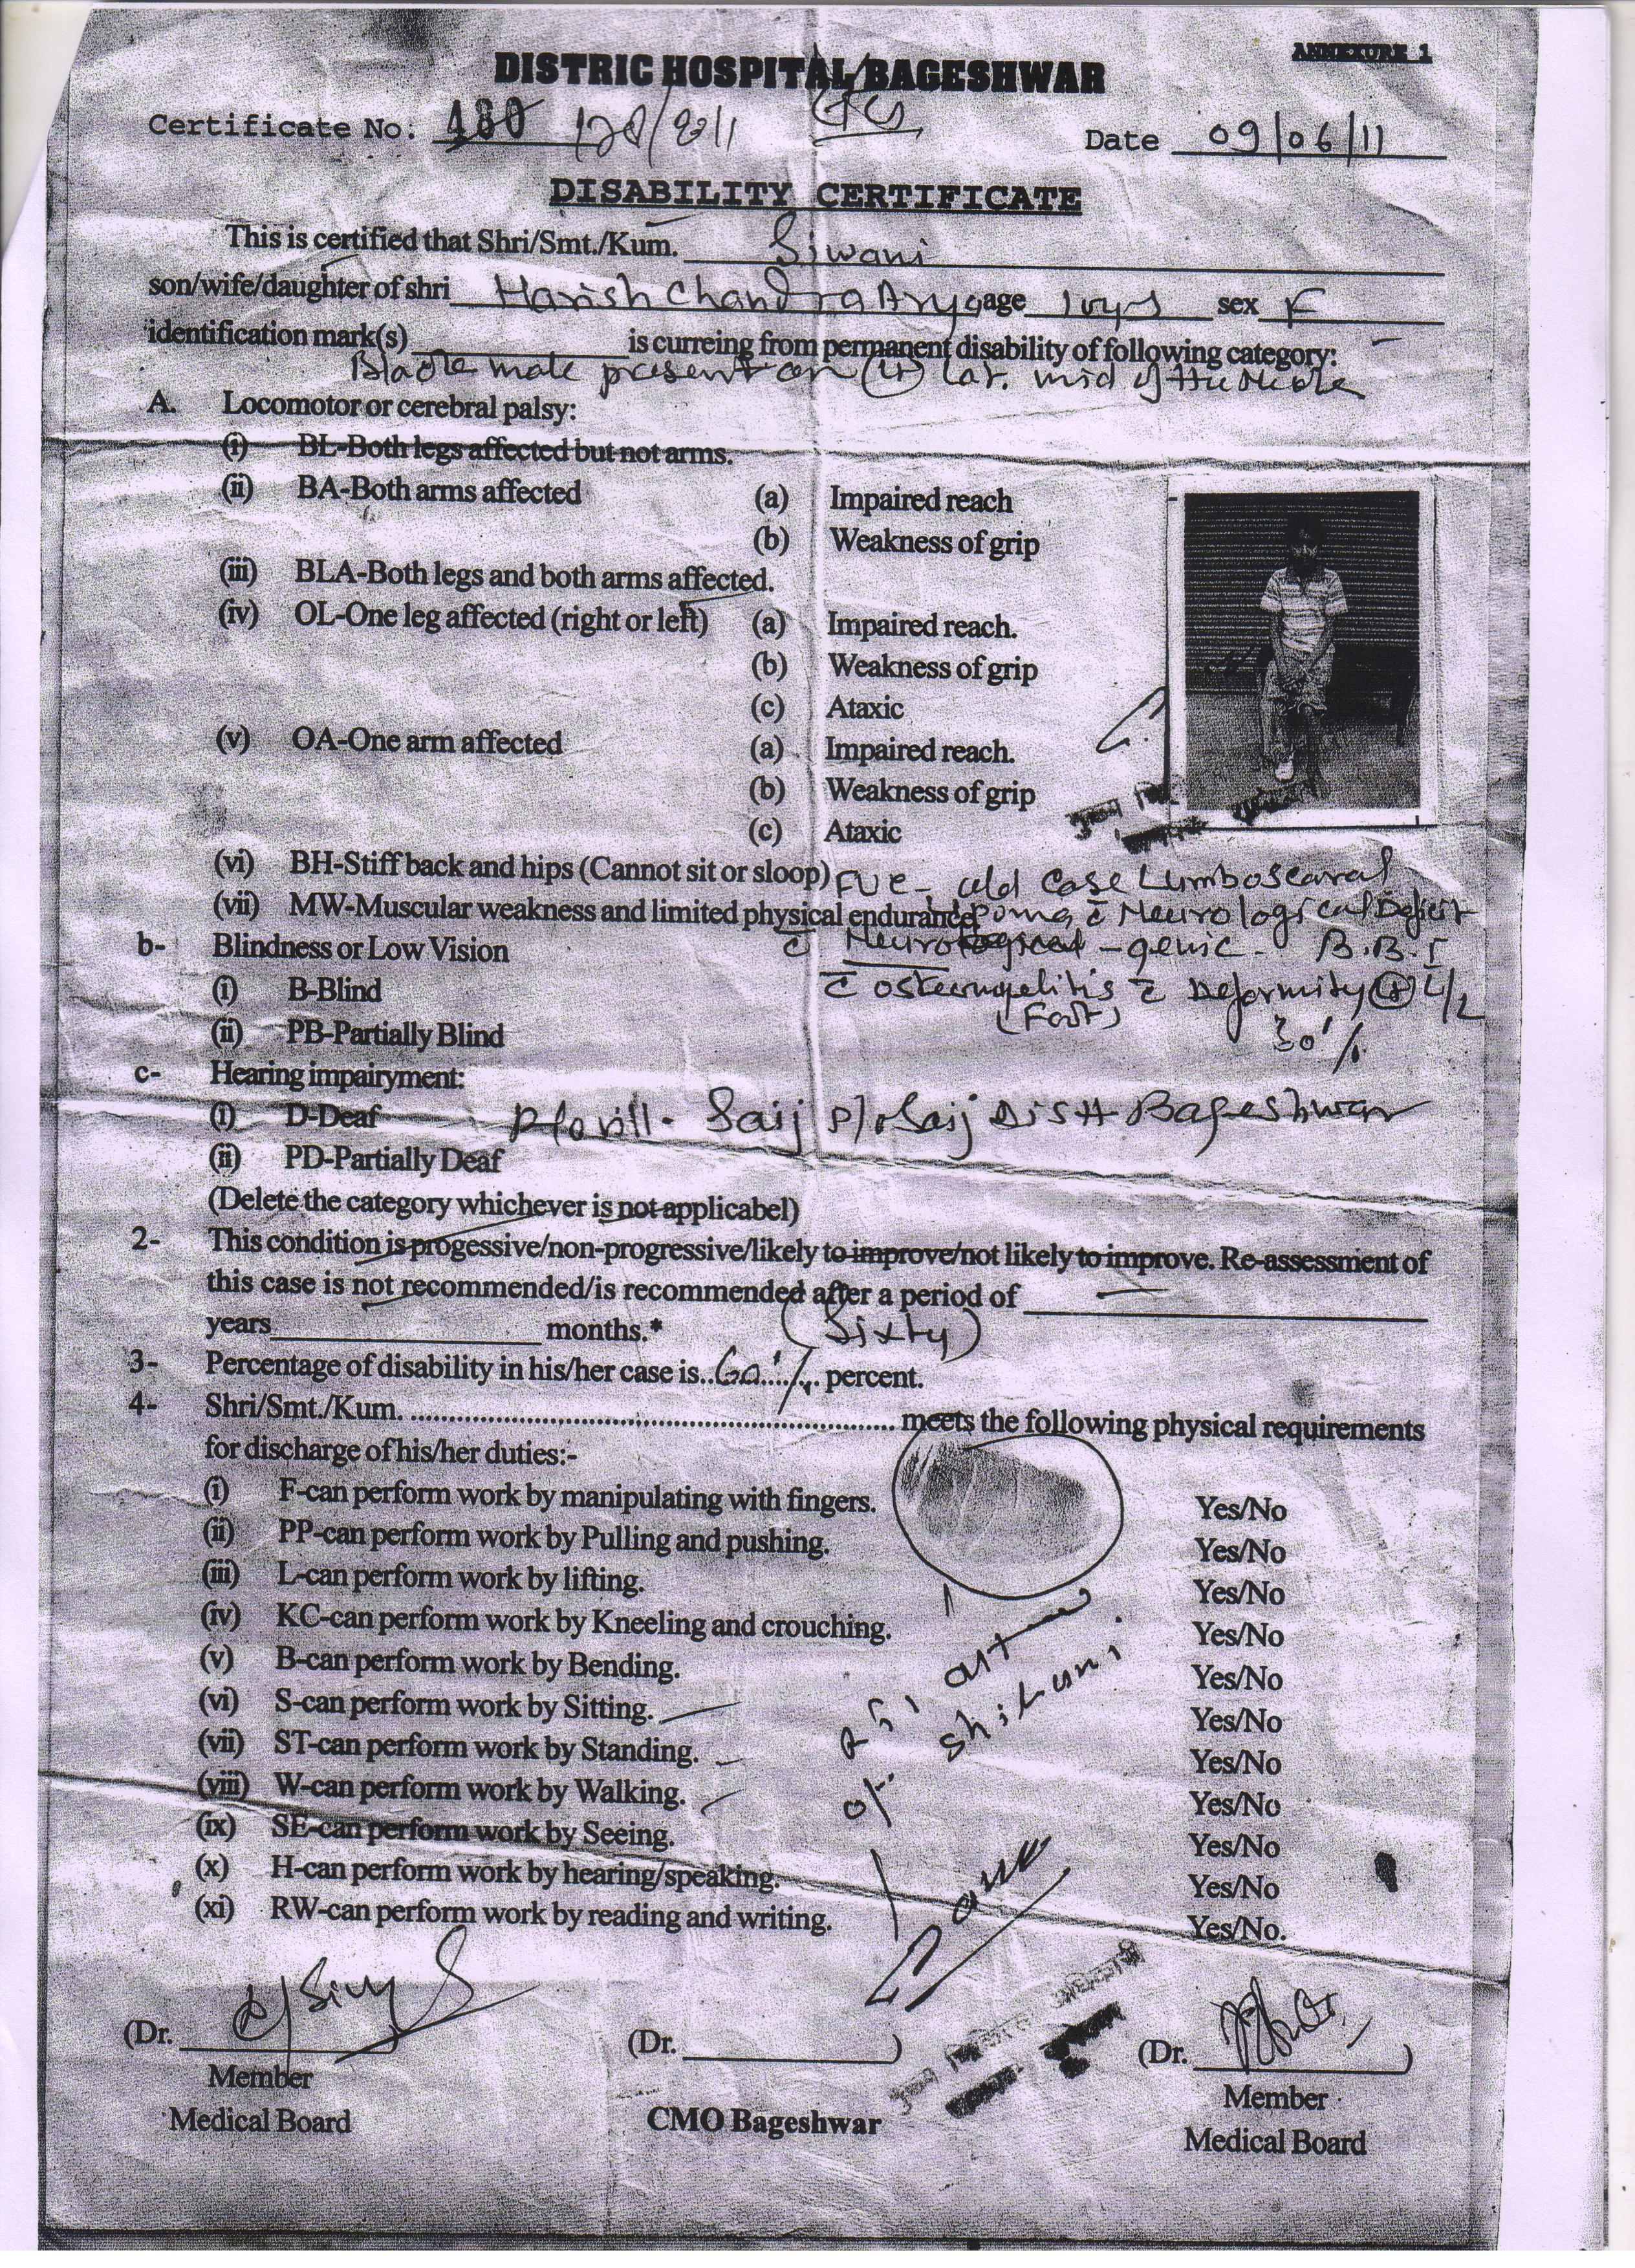 ANNEXURE 1
DISTRIC HOSPITAL BAGESHWAR
Certificate No: 480 128/2011 Date 09/06/11
DISABILITY CERTIFICATE
This is certified that Shri/Smt./Kum. Siwani
son/wife/daughter of shri Harish Chandra Arya age 10 yrs sex F
identification mark(s) is curreing from permanent disability of following category:
present on Lat. mid of the
A. Locomotor or cerebral palsy:
(i) BL-Both legs affected but not arms.
(ii) BA-Both arms affected (a) Impaired reach
(b) Weakness of grip
(iii) BLA-Both legs and both arms affected.
(iv) OL-One leg affected (right or left) (a) Impaired reach.
(b) Weakness of grip
(c) Ataxic
(v) OA-One arm affected (a) Impaired reach.
(b) Weakness of grip
(c) Ataxic
(vi) BH-Stiff back and hips (Cannot sit or sloop) FUC - old Case
(vii) MW-Muscular weakness and limited physical endurance Neurological Deficit
b- Blindness or Low Vision - genic - B.B.I
(i) B-Blind Deformity
(Foot)
(ii) PB-Partially Blind 30%
c- Hearing impairyment:
(I) D-Deaf Vill - Saij P/o Saij Distt Bageshwar
(ii) PD-Partially Deaf
(Delete the category whichever is not applicabel)
2- This condition is progessive/non-progressive/likely to improve/not likely to improve. Re-assessment of
this case is not recommended/is recommended after a period of —
years months.* (Sixty)
3- Percentage of disability in his/her case is..60%.. percent.
4- Shri/Smt./Kum. meets the following physical requirements
for discharge of his/her duties:-
(i) F-can perform work by manipulating with fingers. Yes/No
(ii) PP-can perform work by Pulling and pushing. Yes/No
(iii) L-can perform work by lifting. Yes/No
(iv) KC-can perform work by Kneeling and crouching. Yes/No
(v) B-can perform work by Bending. Yes/No
(vi) S-can perform work by Sitting. Yes/No
(vii) ST-can perform work by Standing. Yes/No
(viii) W-can perform work by Walking. Yes/No
(ix) SE-can perform work by Seeing. Yes/No
(x) H-can perform work by hearing/speaking. Yes/No
(xi) RW-can perform work by reading and writing. Yes/No.
(Dr. (Dr. ) (Dr. )
Member Member
Medical Board CMO Bageshwar Medical Board